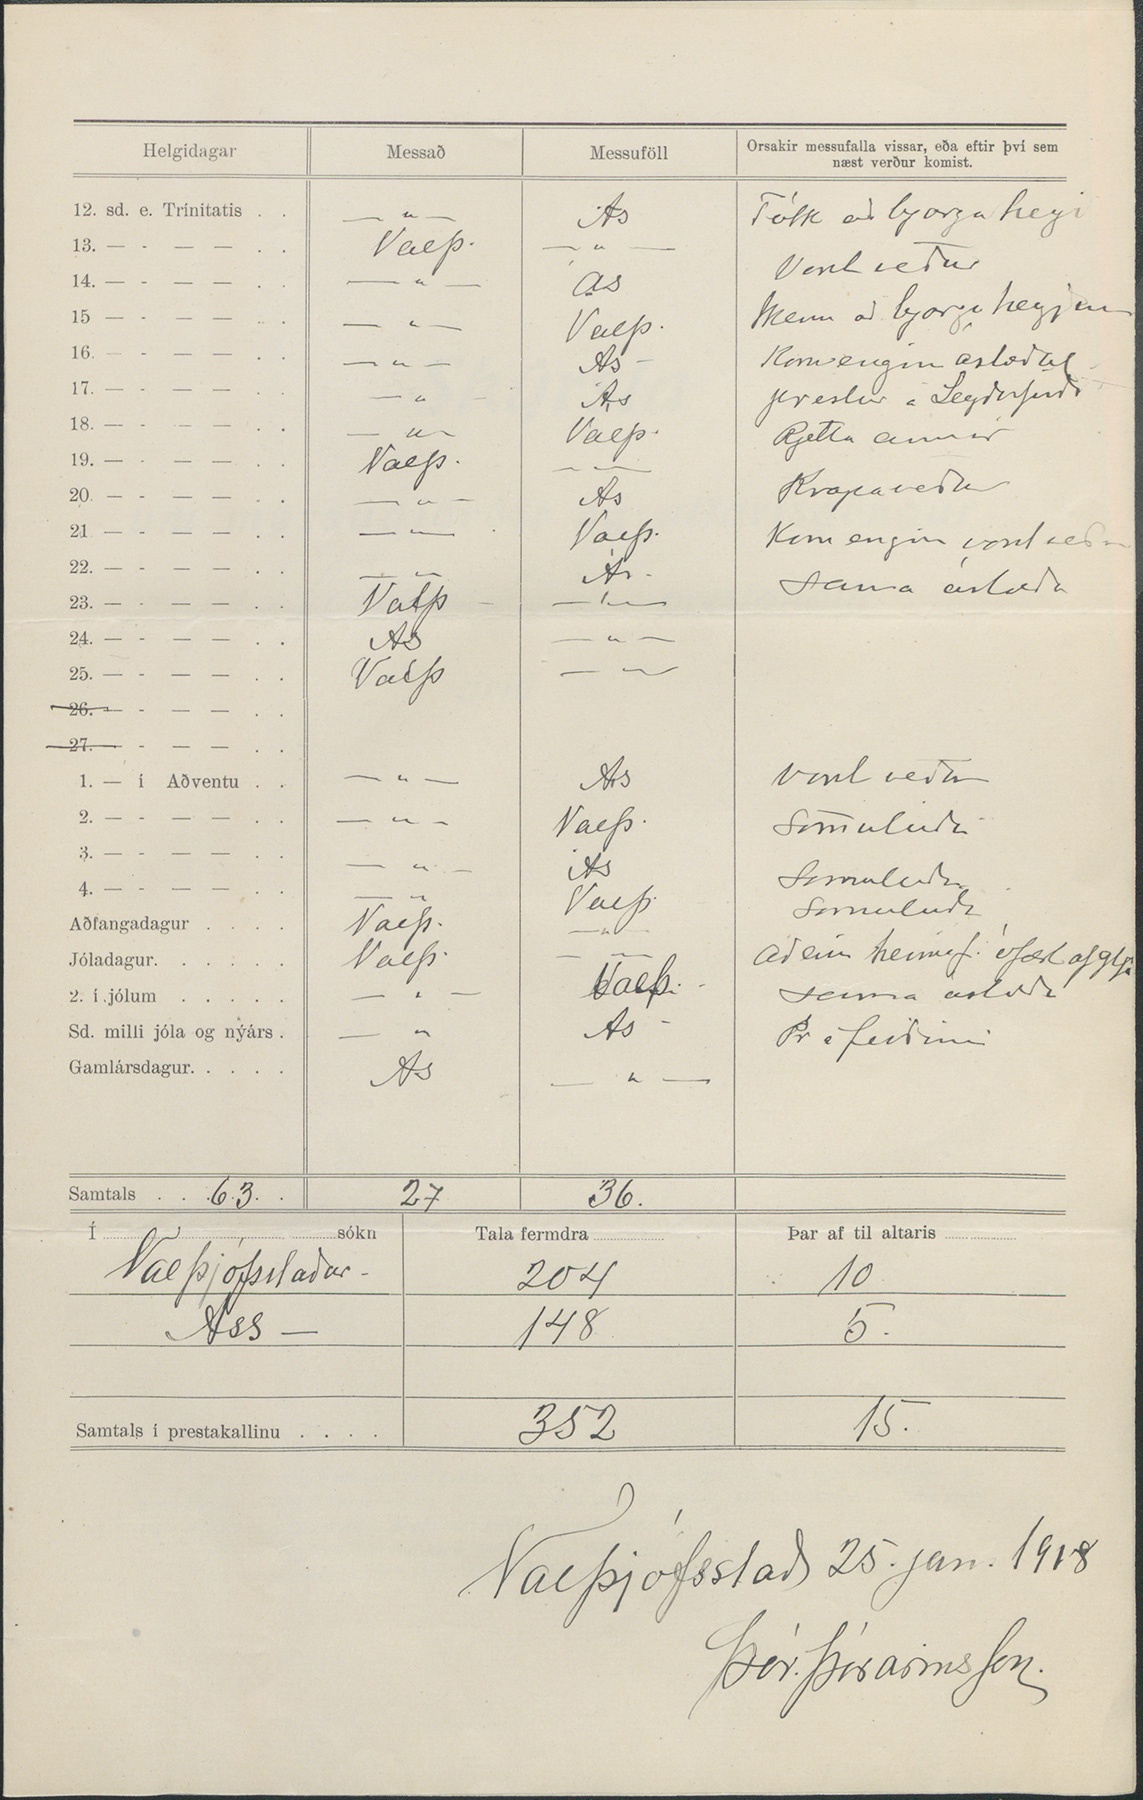 Helgidagar Messað Messuföll Orsakir messufalla vissar, eða eftir því sem
næst verður komist.
12. sd. e. Trínitatis . . — " — Ás Fólk að bjarga heyi
13. — - — — . . Valþ. — " —
14. — - — — . . — " — Ás Vont veður
15 — - — — . . — " — Valþ. Menn að bjarga heyjum
16. — - — — . . — " — Ás — Kom engin
17. — - — — . . — " — Ás prestur á Seyðisfirði
18. — - — — . . — " — Valþ. Rjetta annir
19. — - — — . . Valþ. — " —
20 — - — — . . — " — Ás Krapaveður
21 — - — — . . — " — Valþ. Kom engin vont veður
22. — - — — . . — " — Ás. sama ástæða
23. — - — — . . Valþ — " —
24. — - — — . . Ás — " —
25. — - — — . . Valþ — " —
26. — - — — . .
27. — - — — . .
1. — í Aðventu . . — " — Ás vont veður
2. — - — — . . — " — Valþ. Sömuleiðis
3. — - — — . . — " — Ás Sömuleiðis
4. — - — — . . — " — Valþ Sömuleiðis
Aðfangadagur . . . . Valþ. — " —
Jóladagur. . . . . . Valþ. — " — aðeins heimaf. ófært af
2. í jólum . . . . . — " — Valþ. sama ástæða
Sd. milli jóla og nýárs . — " Ás — Pr á
Gamlársdagur. . . . . Ás — " —
Samtals . . . 63. . 27 36.
Í sókn Tala fermdra Þar af til altaris
Valþjófsstaðar - 204 10
Áss — 148 5.
Samtals í prestakallinu . . . . 352 15.
Valþjófsstað 25. jan. 1918
Þór. Þórarinsson.